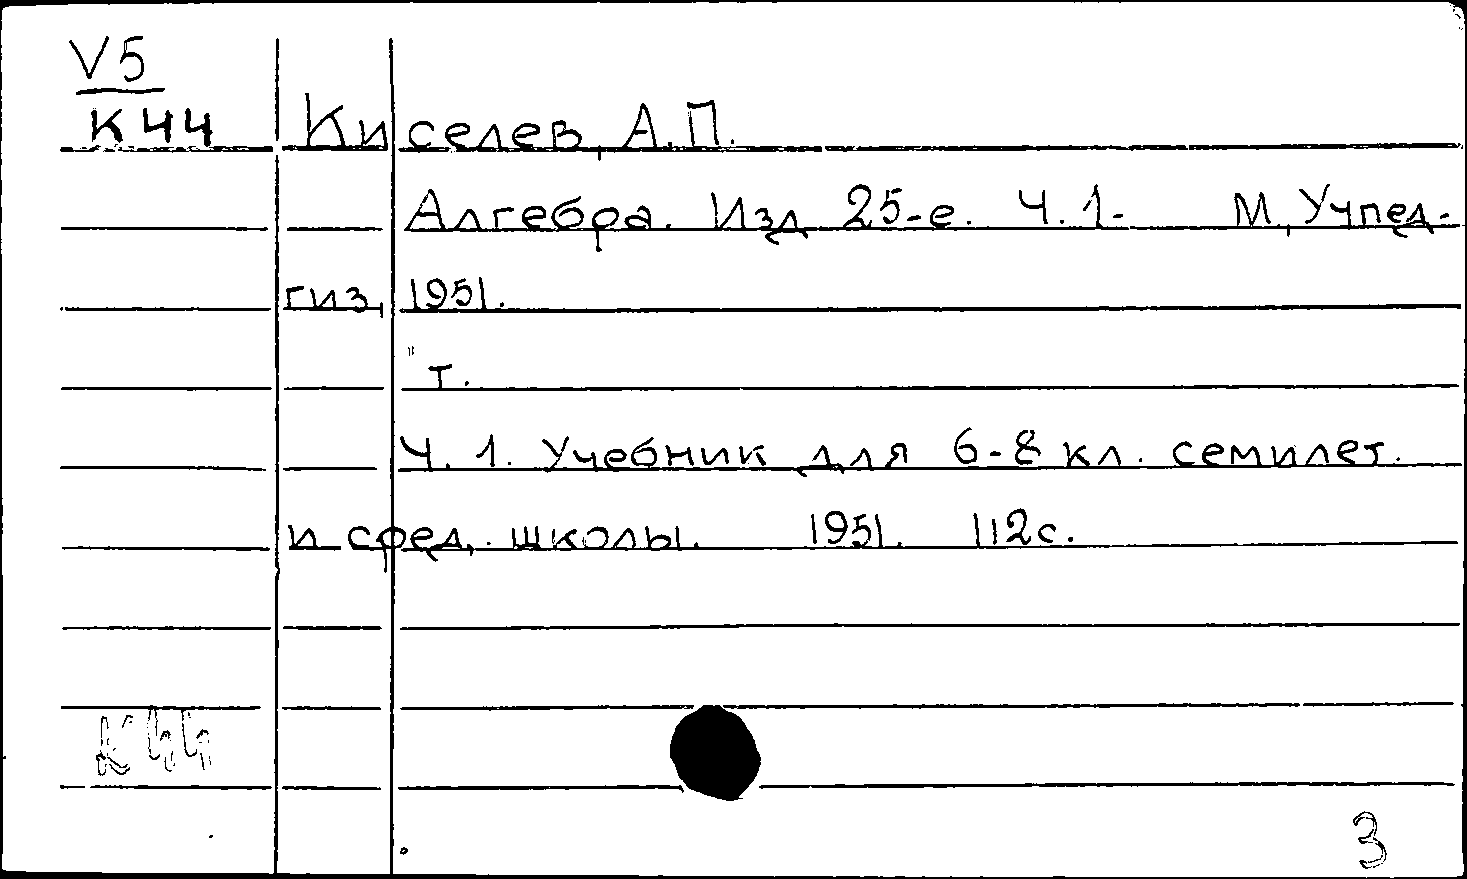 V5
К44 Киселев, А.П.
Алгебра. Изд 25-е. Ч.1- М, Учпед-
гиз, 1951.
" т.
Ч. 1. Учебник для 6-8 кл. семилет.
и сред. школы. 1951. 112с.
К44
3